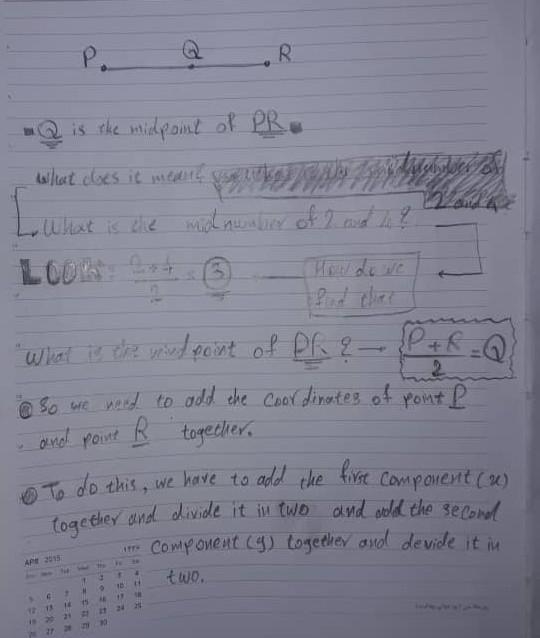 P Q R
Q is the midpoint of PR
What does it mean?
2 and 4
What is the mid number of 2 and 4?
LOOK: 2+4/2 = 3 How do we
find that
What is the midpoint of PR? → P+R/2 = Q
So we need to add the coordinates of point P
and point R together.
To do this, we have to add the first component (x)
together and divide it in two and add the second
component (y) together and devide it in
two.
APR 2015
Sun Mon Tue Wed Thu Fri Sat
1 2 3 4
5 6 7 8 9 10 11
12 13 14 15 16 17 18
19 20 21 22 23 24 25
26 27 28 29 30